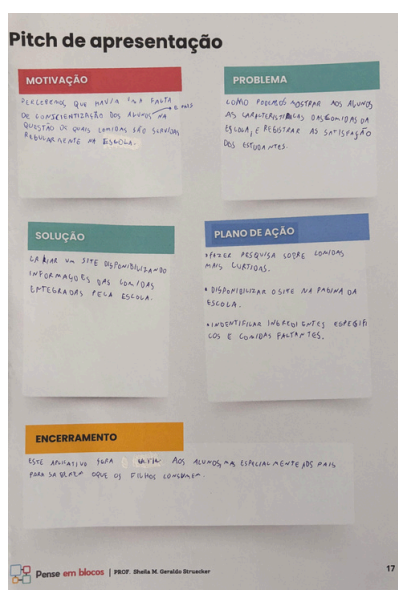 Pitch de apresentação
MOTIVAÇÃO
PERCEBEMOS QUE HAVIA UMA FALTA
E PAIS
DE CONSCIENTIZAÇÃO DOS ALUNOS NA
QUESTÃO DE QUAIS COMIDAS SÃO SERVIDAS
REGULARMENTE NA ESCOLA.
PROBLEMA
COMO PODEMOS MOSTRAR AOS ALUNOS
AS CARACTERISTICAS DAS COMIDAS DA
ESCOLA, E REGISTRAR AS SATISFAÇÃO
DOS ESTUDANTES.
SOLUÇÃO
CRIAR UM SITE DISPONIBILIZANDO
INFORMAÇÕES DAS COMIDAS
ENTEGRADAS PELA ESCOLA.
PLANO DE AÇÃO
•FAZER PESQUISA SOBRE COMIDAS
MAIS CURTIDAS.
• DISPONIBILIZAR O SITE NA PAGINA DA
ESCOLA.
•INDENTIFICAR INGREDIENTES ESPECIFI
COS E COMIDAS FALTANTES.
ENCERRAMENTO
ESTE APLICATIVO SERA AOS ALUNOS, MAS ESPECIALMENTE AOS PAIS
PARA SABEREM OQUE OS FILHOS CONSOMEM.
Pense em blocos | PROF. Sheila M. Geraldo Struecker
17